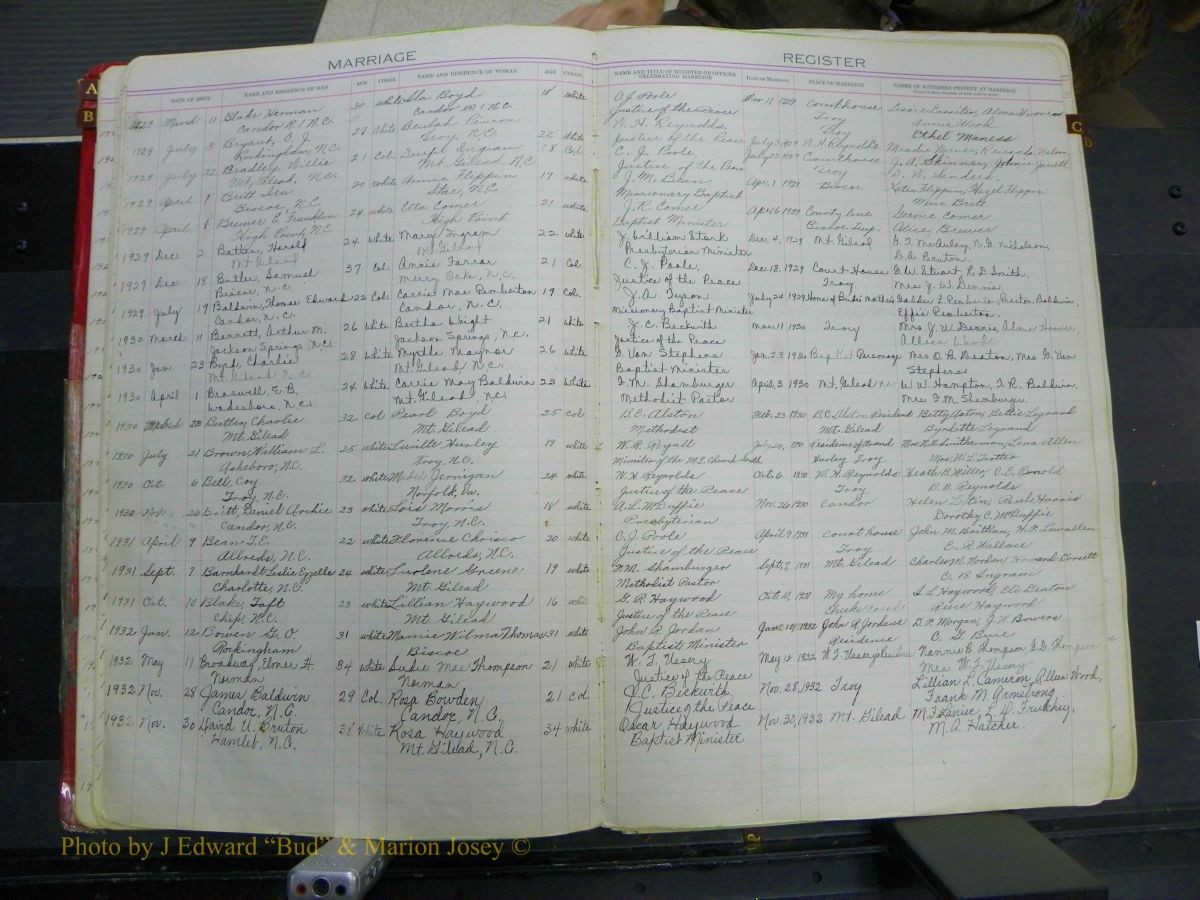 MARRIAGE REGISTER
DATE OF ISSUE NAME AND RESIDENCE OF MAN AGE COLOR NAME AND RESIDENCE OF WOMAN AGE COLOR NAME AND TITLE OF MINISTER OR OFFICER CELEBRATING MARRIAGE DATE OF MARRIAGE PLACE OF MARRIAGE NAMES OF WITNESSES PRESENT AT MARRIAGE
A
B
C
D
1929 March 11 Blake Herman 20 white Ila Boyd 18 white C. J. Poole Mar 11 1929 Courthouse
Candor R1 N.C. Candor R1 N.C. Justice of the Peace Troy Annie Wood
1929 July 3 Bryant, O. J. 29 White Beulah 22 White W. H. Reynolds Troy Ethel Maness
Rockingham N.C. Troy, N.C. Justice of the Peace July 3 1929 W. H. Reynolds
1929 July 22 Bradley, Willie 21 Col. Ingram 18 Col. C. J. Poole July 22 1929 Courthouse J. A. Skinner, Johnie Jewell
Mt. Gilead, N.C. Mt. Gilead N.C. Justice of the Peace Troy D. W. Sanders
1929 April 1 Britt Ira 20 white Annie Flippin 17 white J. M. Bean Apr. 1 1929 Biscoe Katie Flippin, Hazel Flippin
Biscoe, N.C. Star, N.C. Missionary Baptist Britt
1929 April 6 Brewer E. Franklin 24 white Etta Comer 21 white J. R. Comer April 6 1929 County line Gernie Comer
High Point, N.C. High Point Baptist Minister Biscoe Alice Brewer
1929 Dec. 2 Batten, Harold 24 white Mary Ingram 22 white J. William Stork Dec. 4, 1929 Mt. Gilead G. T. McAulay, N. G. Nicholson,
Mt. Gilead Mt. Gilead Presbyterian Minister D. A. Bruton
1929 Dec 18 Butler, Samuel 37 Col. Annie Farrar 21 Col. C. J. Poole, Dec. 18, 1929 Court House G. W. Stuart, R. D. Smith,
Biscoe, N.C. Merry Oak, N.C. Justice of the Peace Troy, Mrs J. W. Dennis.
1929 July 19 Baldwin, Thomas Edward 22 Col. Carrie Mae Pemberton 19 Col. J. A. Tyson July 20 1929 Home of Bride's mother Pemberton, Preston Baldwin,
Candor, N.C. Candor, N.C. Missionary Baptist Minister Effie Pemberton.
1930 March 11 Bennett, Arthur M. 26 white Bertha Wright 21 white J. C. Beckwith Mar. 11 1930 Troy Mrs J. W. Dennis,
Jackson Springs, N.C. Jackson Springs, N.C. Justice of the Peace
1930 Jan. 23 Byrd, Charlie 28 White Myrtle Maynor 26 white G. Van Stephens Jan. 23 1930 Baptist Parsonage Mrs O. B. Deaton, Mrs G. Van
Mt. Gilead N.C. Mt. Gilead, N.C. Baptist Minister Stephens
1930 April 1 Braswell, E. B. 24 white Carrie May Baldwin 23 White F. M. Shamburger April 3, 1930 Mt. Gilead N.C. W. W. Hampton, T. R. Baldwin,
Wadesboro, N.C. Mt. Gilead, N.C. Methodist Pastor Mrs. F. M. Shamburger.
1930 March 20 Butler, Charlie 32 Col Pearl Boyd 25 Col D. C. Alston Feb. 23 1930 D. C. Alston Residence Betty Alston, Bettie Legrand
Mt. Gilead Mt. Gilead Methodist Mt. Gilead Legrand
1930 July 21 Brown, William L. 25 white Lucille Hurley 19 white W. R. Royall July 24, 1930 Residence of Smitherman, Lena Allen
Asheboro, N.C. Troy, N.C. Minister of the M. E. Church South Hurley Troy Mrs. H. L. Trotter
1930 Oct. 6 Bell, Coy 32 white Jernigan 24 white W. H. Reynolds Oct. 6 1930 W. H. Reynolds Heath B. Miller, C. E.
Troy, N.C. Norfolk, Va. Justice of the Peace Troy B. B. Reynolds
1930 Nov. 26 Britt, Daniel Archie 23 white Lois Morris 18 white A. L. McDuffie Nov. 26 1930 Candor Helen Harris
Candor, N.C. Troy, N.C. Presbyterian Dorothy C. McDuffie
1931 April 9 Bean T. E. 22 white Florence Chrisco 20 white C. J. Poole April 9 1931 Court house John M. Brittain, H. F. Lewallen
Allreds, N.C. Allreds, N.C. Justice of the Peace Troy E. R. Wallace
1931 Sept. 7 Barnhardt Leslie Ezzelle 24 white Lurlene Greene 19 white F. M. Shamburger Sept. 7, 1931 Mt. Gilead Charles M. Howard Dorsett
Charlotte, N.C. Mt. Gilead Methodist Pastor C. B. Ingram
1931 Oct. 10 Blake, Taft 23 white Lillian Haywood 16 white G. R. Haywood Oct 10, 1931 My home A. L. Haywood, Deaton
Chip, N.C. Mt. Gilead Justice of the Peace Cheeks Creek Haywood
1932 Jan. 12 Bowen G. O. 31 white Mamie Wilma Thomas 31 white John R. Jordan Jan. 12, 1932 John R. Jordans D. A. Morgan, J. W. Bowers
Rockingham Biscoe Baptist Minister Residence C. G. Buie
1932 May 17 Broadway, Elmer H. 34 white Sudie Mae Thompson 21 white W. T. Usery May 17 1932 W. T. Userys Residence Nannie B. Thompson, J. D. Thompson
Norman Norman Justice of the Peace Mrs. W. T. Usery
1932 Nov. 28 James Baldwin 29 Col. Rosa Bowden 21 Col J. C. Beckwith Nov. 28, 1932 Troy Lillian L. Cameron, Allen Wood,
Candor, N.C. Candor, N.C. Justice of the Peace Frank M. Armstrong
1932 Nov. 30 Baird U. Bruton 38 White Rosa Haywood 34 white Oscar Haywood Nov. 30, 1932 Mt. Gilead M. F. Lanier,
Hamlet, N.C. Mt. Gilead, N.C. Baptist Minister M. A. Hatcher.
Photo by J Edward “Bud” & Marion Josey ©